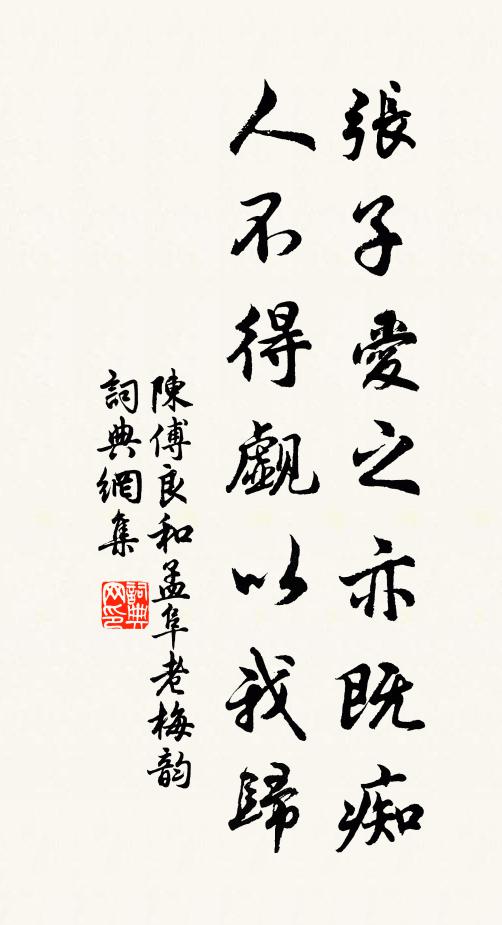 張子愛之亦既痴
人不得覷以我歸
陳傅良和孟阜老梅韵
詞典網集
詞典
网印